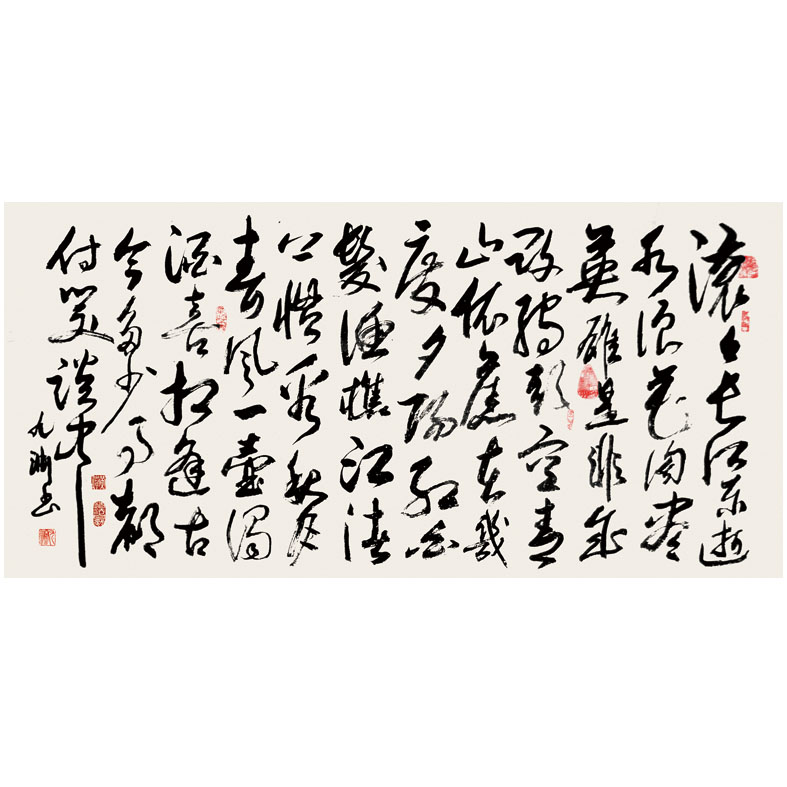 滚々长江东逝
水浪花淘尽
英雄是非成
败转头空青
山依舊在幾
度夕阳红白
髮渔樵江渚
上惯看秋月
春风一壶濁
酒喜相逢古
今多少事都
付笑谈中